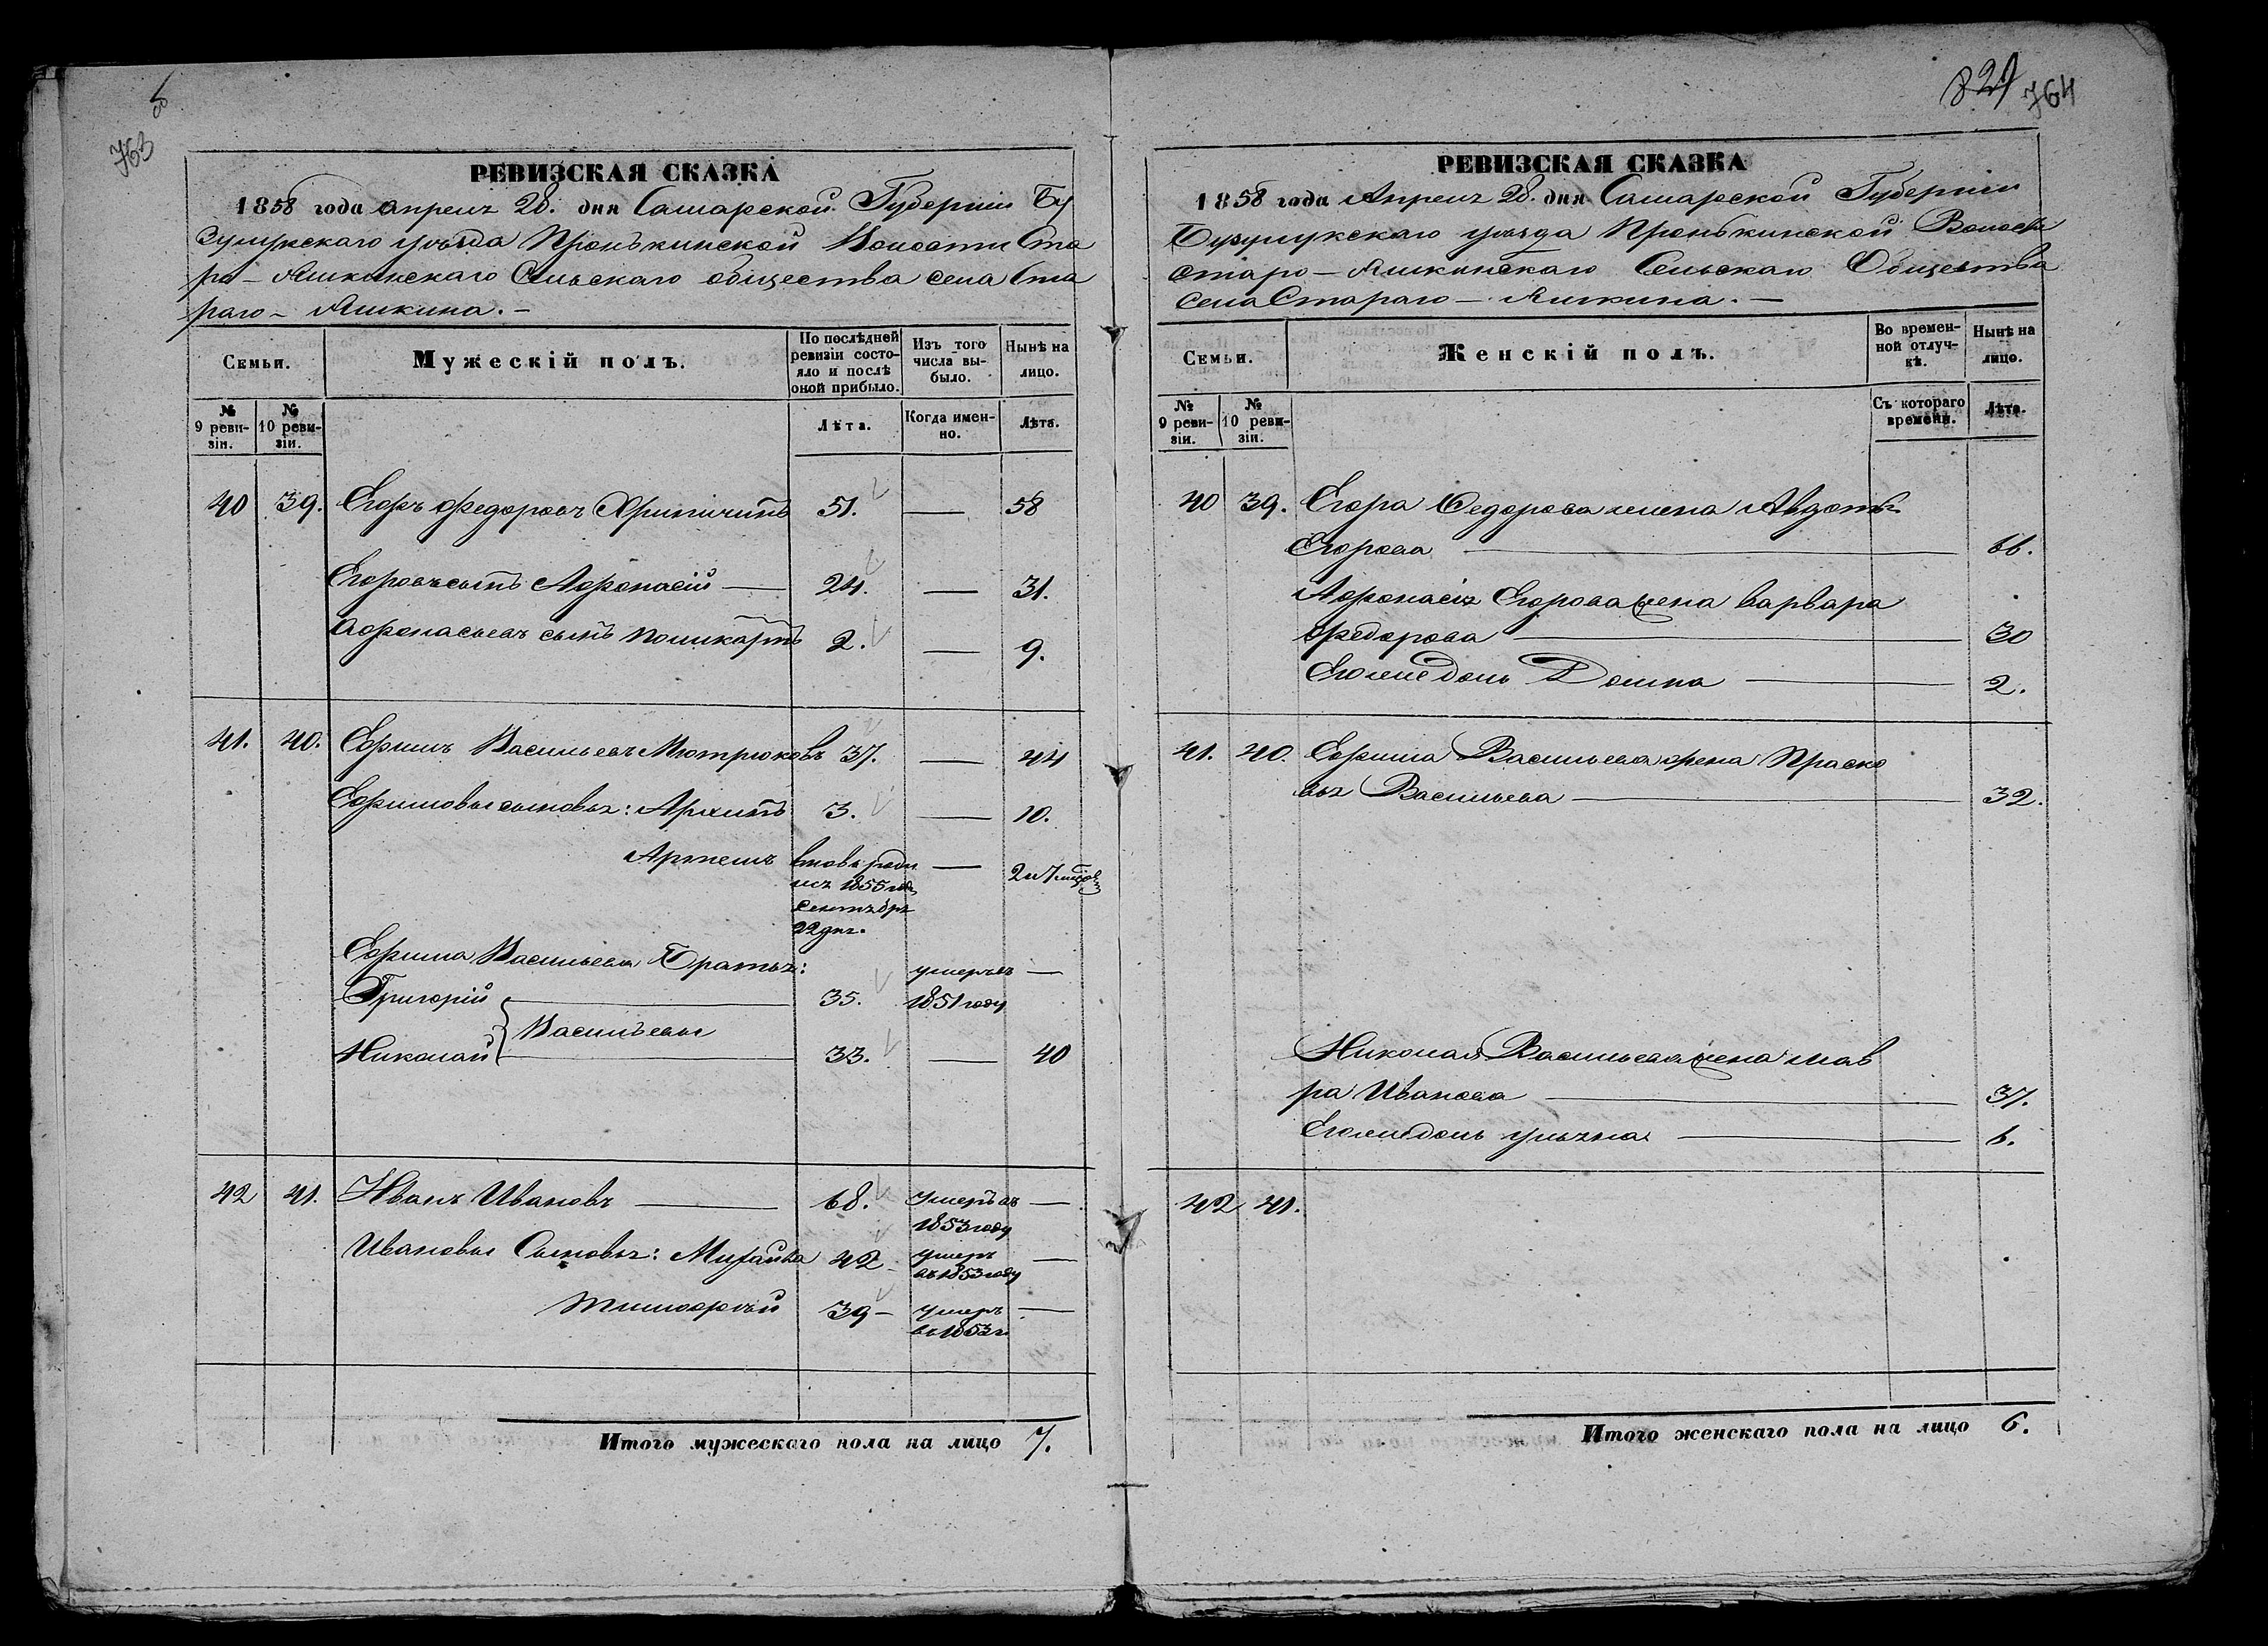 763
об
РЕВИЗСКАЯ СКАЗКА
1858 года апреля 28. дня Самарской Губернiи Бу
зулукскаго уѣзда Пронькинской Волости Ста
ро - Яшкинскаго Сельскаго общества села Ста
раго - Яшкина. -
Семьи.
Мужескiй полъ.
По послѣдней ревизiи состояло и послѣ оной прибыло.
Изъ того числа выбыло.
Нынѣ на лицо.
№ 9 ревизiи.
№ 10 ревизiи.
Лѣта.
Когда именно.
Лѣта.
40 39. Егоръ Федоровъ 51. — 58
Егоровъ сынъ Афонасiй — 24. — 31.
Афонасьевъ сынъ Поликарпъ 2. — 9.
41. 40. Ефимъ Васильевъ Мютрюковъ 37. — 44
Ефимовы сыновья: Архипъ 3. — 10.
Артемъ вновь роди — 2 и 7 мѣсяцовъ
лся 1855 года
сентября
22 дня.
Ефима Васильева Братья: умеръ въ —
Григорiй — 35. 1851 году
Васильевы
Николай — 33. — 40
42 41. Иванъ Ивановъ — 68. Умеръ въ —
1853 году
Ивановы Сыновья: Михайла 42 умеръ —
въ 1853 году
Тимофей 39 - умеръ —
въ 1853 г.
Итого мужескаго пола на лицо 7.
829 764
РЕВИЗСКАЯ СКАЗКА
1858 года Апреля 28. дня Самарской Губернiи
Бузулукскаго уѣзда Пронькинской Волости
Старо - Яшкинскаго Сельскаго Общества
Села Стараго - Яшкина. -
Семьи.
Женскiй полъ.
Во временной отлучкѣ.
Нынѣ на лицо.
№ 9 ревизiи.
№ 10 ревизiи.
Съ котораго времени.
Лѣта.
40 39. Егора Федорова жена Авдотья
Егорова — 66.
Афонасiя Егорова жена Варвара
Федорова — 30
Его же дочь Домна — 2.
41. 40. Ефима Васильева жена Праско
вья Васильева — 32.
Николая Васильева жена Мав
ра Иванова — 37.
Его же дочь Ульяна — 6.
42 41.
Итого женскаго пола на лицо 6.